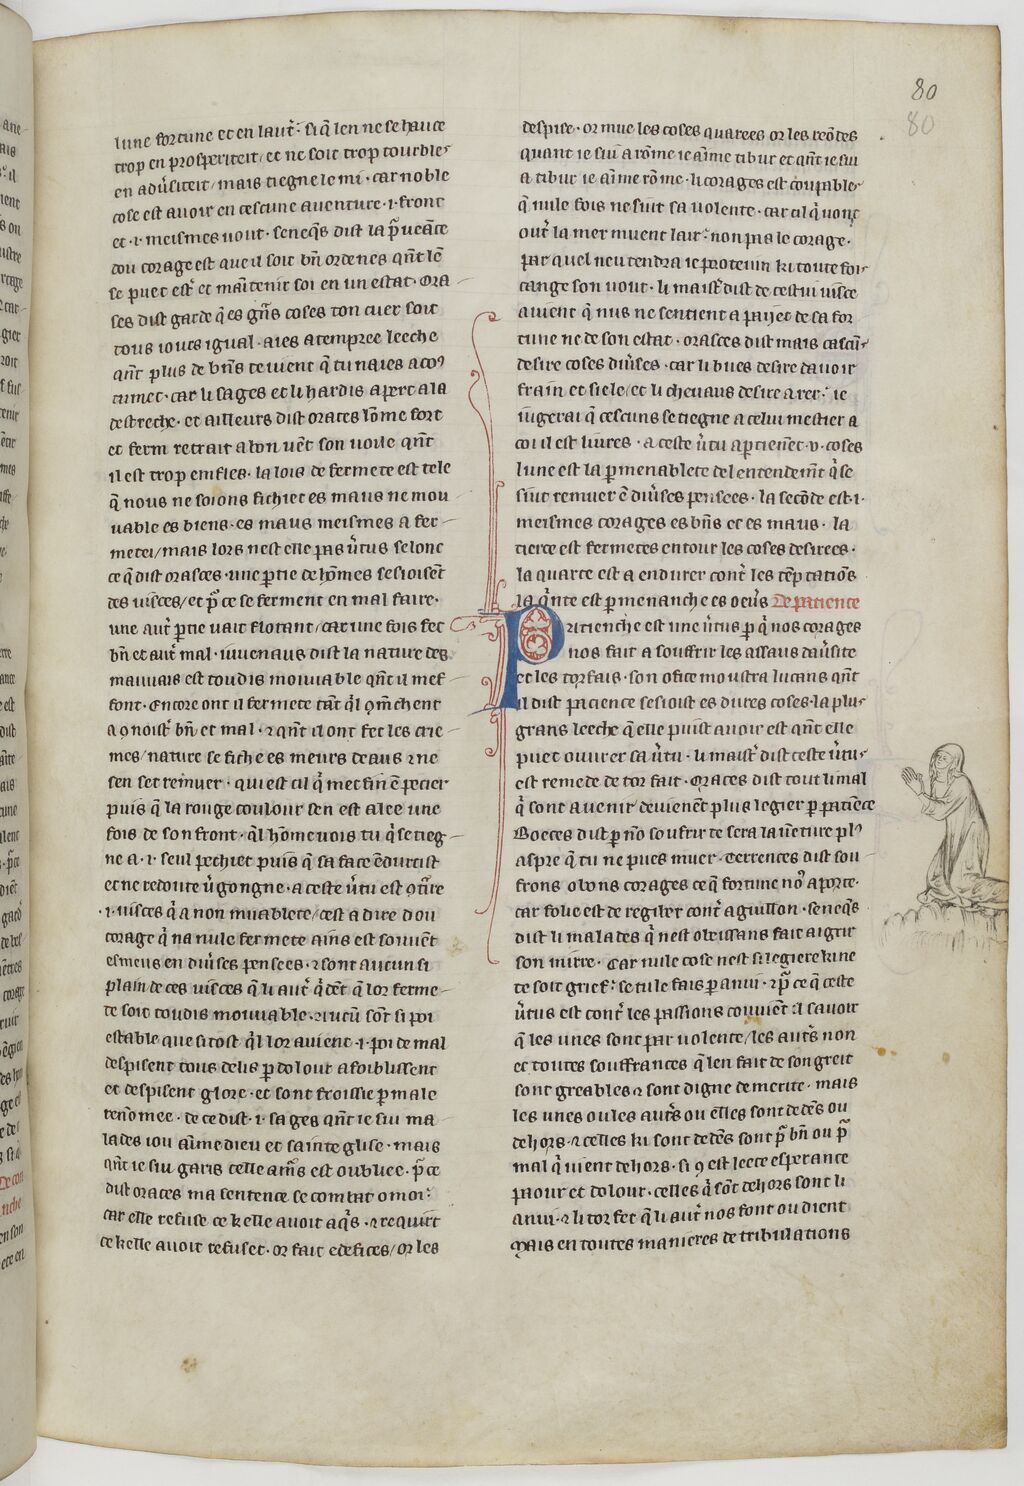 80
80
lune fortune et en laut᷑ si q̄ len ne se hauce
trop en prosperiteit / et ne soit trop tourbles
en adũsiteit / mais tiegne le mi · car noble
cose est auoir en cescune auenture · i · front
et · i · meismes uout · seneq̃s dist la p̃ueāce
dou corage est que il soit bñ ordenes qñt lē
se puet estr̃ et māitenir soi en un estat · Ora
ses dist garde q̃ es gñs coses ton cuer soit
tous iours igual · aies atempree leeche
qñt plus de bñs te uient q̃ tu naies acos
tumet · car li sages et li hardis apert a la
destreche · et ailleurs dist oraces lōme fort
et ferm retrait a bon uēt son uoile qñt
il est trop emfles · la lois de fermete est tele
q̃ nous ne soions fichiet es maus ne mou
uable es biens · es maus meismes a fer
metei / mais lors nest elle pas ũtus selonc
ce q̃ dist orasces · une ꝑtie de hōmes sesioisēt
des uisces / et p̃ ce se ferment en mal faire ·
une aut᷑ ꝑtie uait flotant / car une fois fet
bñ et aut᷑ mal · iuuenaus dist la nature des
mauuais est toudis mouuable qñt il mef
font · Encore ont il fermete tāt q̃l ꝯmēchent
a ꝯnoistr̃ bñ et mal · ⁊ qñt il ont fet les crie
mes / nature se fiche es meurs deaus ⁊ ne
sen set remuer · qui est cil q̃ met fin ē pecier
puis q̃ la rouge coulour sen est alee une
fois de son front · q̃l homme uois tu q̃ se tieg
ne a · i · seul pechiet puis q̃ sa face ēdurcist
et ne redoute ũgongne · a ceste ũtu est ꝯt᷑re
· i · uisces q̃ a non muablete / cest a dire dou
corage q̃ na nule fermete ains est souuēt
esmeus en diũses pensees · ⁊ sont aucun si
plain de ces uisces q̃ li aut᷑ q̃dēt q̃ lor ferme
te soit toudis mouuable · ⁊ iucū sōt si poi
estable que si tost q̃l lor auient · i · poi de mal
despisent tous delis ꝑ dolout afoiblissent
et despisent glore · et sont froissie ꝑ male
renōmee · de ce dist · i · sages qñt ie sui ma
lades iou aīme dieu et sainte glise · mais
qñt ie sui garis celle am̃s est oubliee · p̃ ce
dist oraces ma sentence se combat o moi :
car elle refuse ce kelle auoit aq̃s · ⁊ requirt
ce kelle auoit refuset · or fait edefices / or les
despise · or mue les coses quarees or les reōdes
quant ie sui a rōme ie aīme tibur et qñt ie sui
a tibur ie aīme rōme · li corages est coupables
q̃ nule fois ne fuit sa uolente · car cil q̃ uont
out᷑ la mer muent lair : non pas le corage ·
par quel neu tendra ie proteum ki toute fois
cange son uout · li maistr̃ dist de cestui uisce
auient q̃ nus ne sentient a paiiet de sa for
tune ne de son estat · orasces dist mais cascūs
desire coses diũses · car li bues desire dauoir
frain et siele / et li cheuaus desire arer · ie
iugerai q̃ cescuns se tiegne a celui mestier a
coi il est liures · a ceste ũtu aptienēt · v · coses
lune est la ꝑmenablete del entendem̃t q̃ se
siut remuer ē diũses pensees · la secōde est · i ·
meismes corages es bñs et es maus · la
tierce est fermetes entour les coses desirees ·
la quarte est a endurer cont᷑ les tēptatiōs
la q̃nte est ꝑmenanche es oeũs De patience
Patienche est une ũtus ꝑ q̃ nos corages
nos fait a souffrir les assaus daũsite
et les torfais · son ofice moustra lucans qñt
il dist pacience sesioist es dures coses · la plus
grans leeche q̃ elle puist auoir est qñt elle
puet ouurer sa ũtu · li maistr̃ dist ceste ũtus
est remede de tor fait · Oraces dist tout li mal
q̃ sont auenir deuienēt plus legier ꝑ patiēce
Boeces dist ꝑ nō soufrir te sera lauēture pls
aspre q̃ tu ne pues muer · Terrences dist sou
frons o bons corages ce q̃ fortune nos aporte ·
car folie est de regiber cont᷑ aguillon · seneq̃s
dist li malades q̃ nest obeissans fait aigrir
son mirre · Car nule cose nest si legiere kine
te soit grief : se tu le fais ꝑ anui · ⁊ p̃ ce q̃ ceste
ũtus est cont᷑ les passions couuiēt il sauoir
q̃ les unes sont par uolente / les aut᷑s non
et toutes souffrances q̃ len fait de son greit
sont greables ⁊ sont digne de merite · mais
les unes ou les aut᷑s ou elles sont dedēs ou
dehors · ⁊ celles ki sont dedēs sont p̃ bñ ou p̃
mal q̃ uient dehors · si ꝯ est leece esperance
paour et dolour · celles q̃ sōt dehors sont li
anui · ⁊ li torfet q̃ li aut᷑ nos font ou dient
Mais en toutes manieres de tribulations